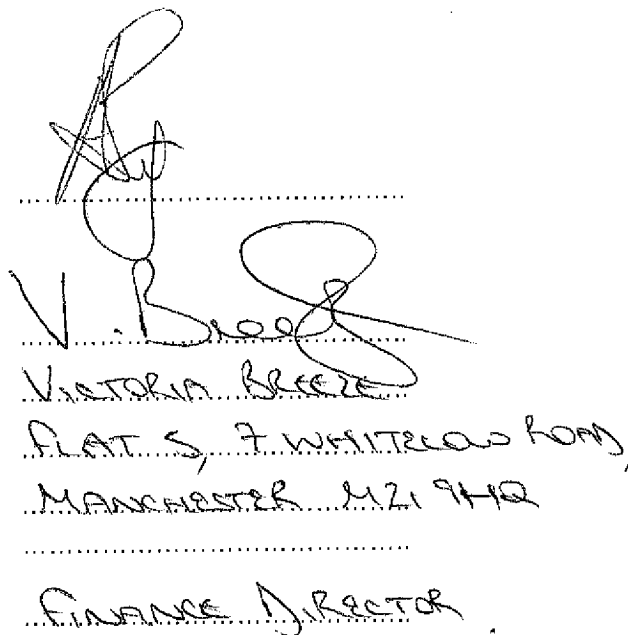 V. Breeze
VICTORIA BREEZE
FLAT 5, 7 WHITELOW ROAD,
MANCHESTER M21 9HQ
FINANCE DIRECTOR